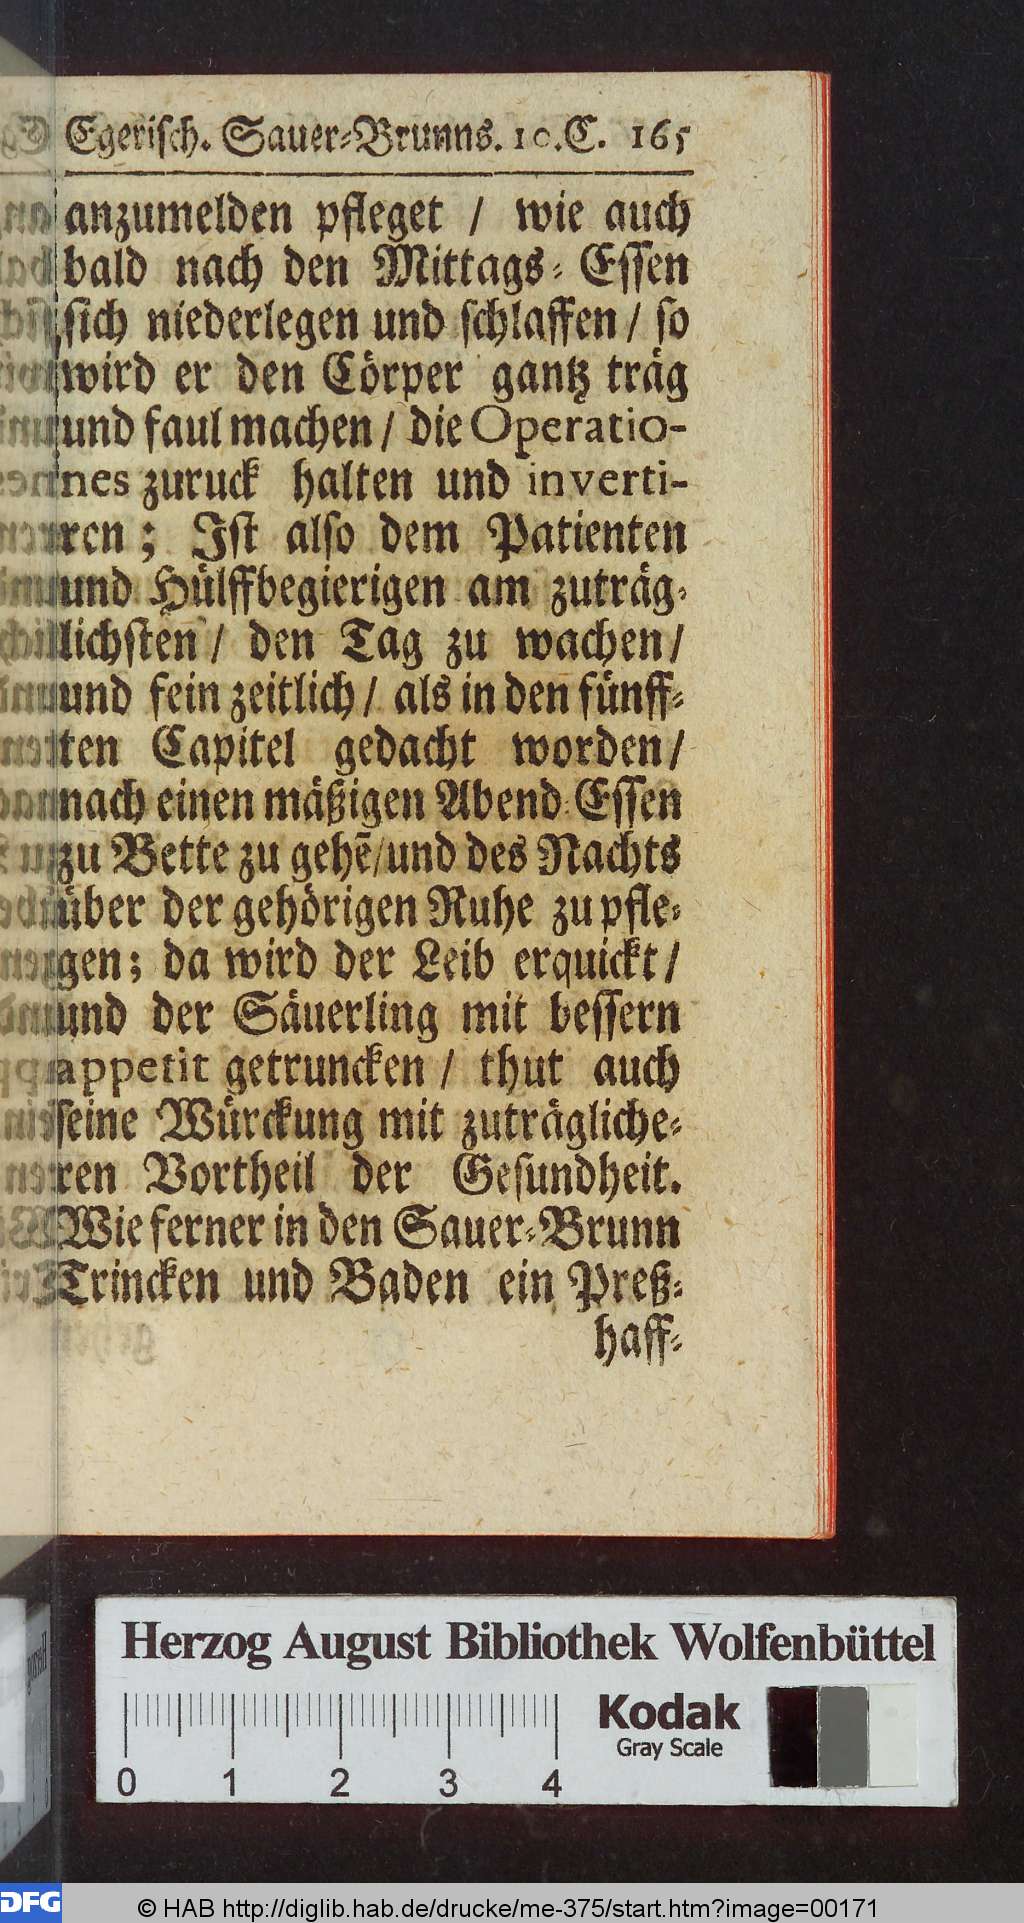 Egerisch. Sauer-Brunns. 10.C. 165
anzumelden pfleget / wie auch
bald nach den Mittags-Essen
sich niederlegen und schlaffen / so
wird er den Cörper gantz träg
und faul machen / die Operatio-
nes zuruck halten und inverti-
ren; Ist also dem Patienten
und Hülffbegierigen am zuträg-
lichsten / den Tag zu wachen /
und fein zeitlich / als in den fünff-
ten Capitel gedacht worden /
nach einen mäßigen Abend-Essen
zu Bette zu gehē / und des Nachts
über der gehörigen Ruhe zu pfle-
gen; da wird der Leib erquickt /
und der Säuerling mit bessern
appetit getruncken / thut auch
seine Würckung mit zuträgliche-
ren Vortheil der Gesundheit.
Wie ferner in den Sauer-Brunn
Trincken und Baden ein Preß-
haff-
Herzog August Bibliothek Wolfenbüttel
Kodak
Gray Scale
0 1 2 3 4
DFG
© HAB http://diglib.hab.de/drucke/me-375/start.htm?image=00171